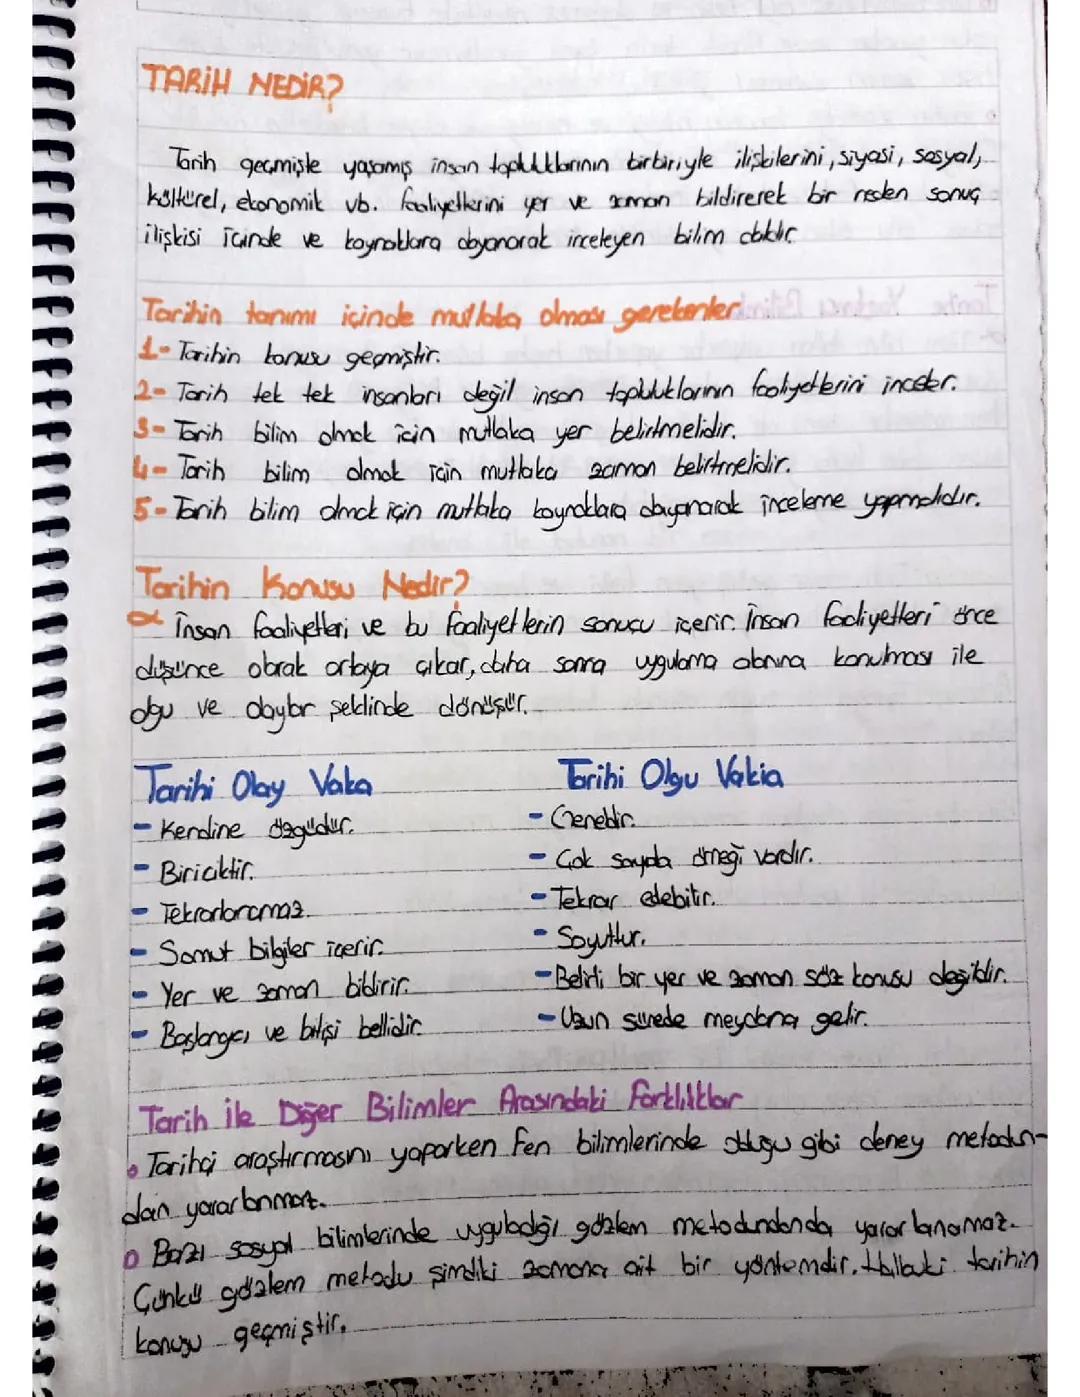 TARİH NEDİR?
Tarih geçmişte yaşamış insan topluluklarının birbiriyle ilişkilerini, siyasi, sosyal,
kültürel, ekonomik vb. faaliyetlerini yer ve zaman bildirerek bir neden sonuç
ilişkisi içinde ve kaynaklara dayanarak inceleyen bilim dalıdır.
Tarihin tanımı içinde mutlaka olması gerekenler
1- Tarihin konusu geçmiştir.
2- Tarih tek tek insanları değil insan topluluklarının faaliyetlerini inceler.
3- Tarih bilim olmak için mutlaka yer belirtmelidir.
4- Tarih bilim olmak için mutlaka zaman belirtmelidir.
5- Tarih bilim olmak için mutlaka kaynaklara dayanarak inceleme yapmalıdır.
Tarihin Konusu Nedir?
İnsan faaliyetleri ve bu faaliyetlerin sonucu içerir. İnsan faaliyetleri önce
düşünce olarak ortaya çıkar, daha sonra uygulama alanına konulması ile
olgu ve olaylar şeklinde dönüşür.
Tarihi Olay Vaka
- Kendine özgüdür.
- Biriciktir.
- Tekrarlanamaz.
- Somut bilgiler içerir.
- Yer ve zaman bildirir.
- Başlangıcı ve bitişi bellidir.
Tarihi Olgu Vakia
- Geneldir.
- Çok sayıda örneği vardır.
- Tekrar edebilir.
- Soyuttur.
- Belirli bir yer ve zaman söz konusu değildir.
- Uzun sürede meydana gelir.
Tarih İle Diğer Bilimler Arasındaki Farklılıklar
Tarihçi araştırmasını yaparken Fen bilimlerinde olduğu gibi deney metodun-
dan yararlanmaz.
Bazı sosyal bilimlerinde uyguladığı gözlem metodundanda yararlanamaz.
Çünkü gözlem metodu şimdiki zamana ait bir yöntemdir. Halbuki tarihin
konusu geçmiştir.